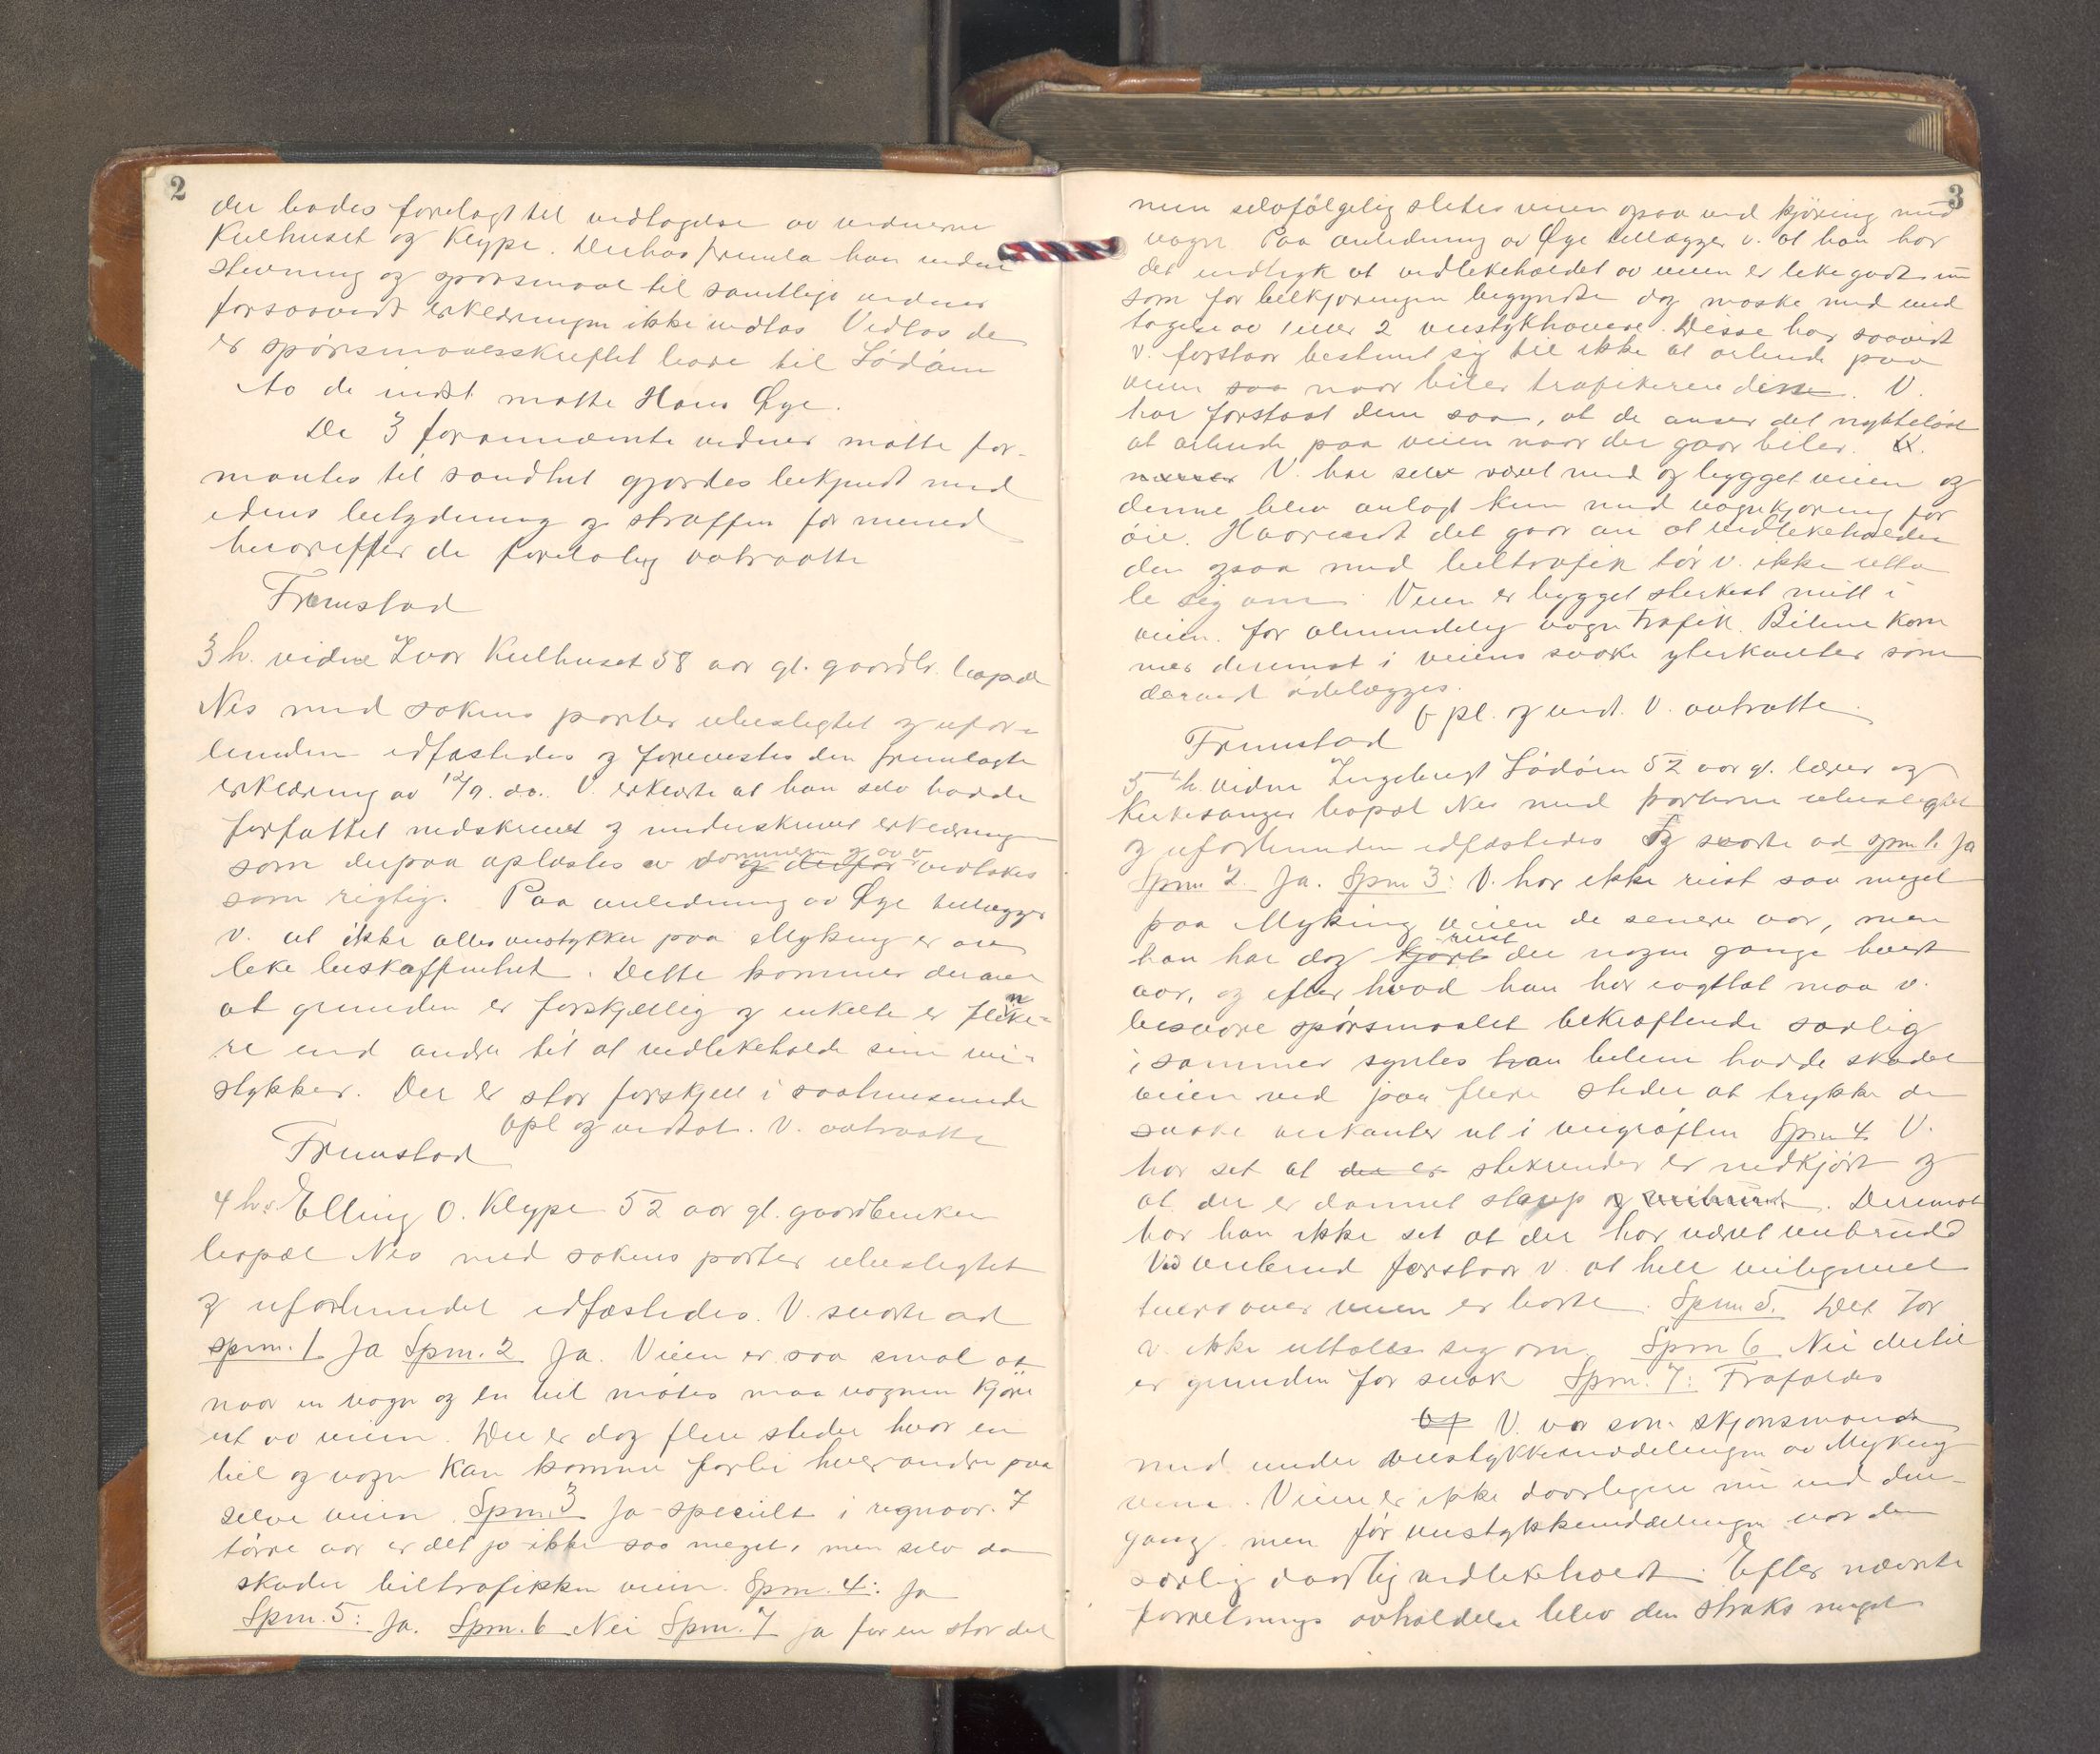 2
der bades forelagt til vedtagelse av vidnerne
Kulhuset og Klype. Derhos fremla han vidne
stevning og spørsmaal til samtlige vidner
forsaavidt erklæringen ikke vedtas Vedtas de
er spørsmaalsskriftet bare til Lödöen
Av de indst. møtte Hans Øye.
De 3 forannævnte vidner møtte for-
mantes til sandhet gjordes bekjendt med
edens betydning og straffen for mened
hvorefter de foreløbig avtraatte
Fremstod
3 h. vidne Ivar Kulhuset 58 aar gl. gaardbr. bopæl
Nes med sakens parter ubeslegtet og ufor-
bunden edfæstedes og forevistes den fremlagte
erklæring av 12/9. da. V. erklærte at han selv hadde
forfattet nedskrevet og underskrevet erklæringen
som derpaa oplæstes av dommeren og av v. vedtokes
som rigtig. Paa anledning av Øye tillægger
v. at ikke alle veistykker paa Myking er av
like beskaffenhet. Dette kommer derav
at grunden er forskjællig og enkelte er flinke-
re end andre til at vedlikeholde sine vei-
stykker. Der er stor forskjell i saahenseende
Opl og vedtat. V. avtraatte
Fremstod
4 h.v. Elling O. Klype 52 aar gl. gaardbruker
bopæl Nes med sakens parter ubeslegtet
og uforbundet edfæstedes. V. svarte ad
spm. 1 Ja Spm. 2 Ja. Veien er saa smal at
naar en vogn og en bil møtes maa vognen kjøre
ut av veien. Der er dog flere steder hvor en
bil og vogn kan komme forbi hverandre paa
selve veien. Spm. 3 Ja specielt i regnaar. I
tørre aar er det jo ikke saa meget, men selv da
skader biltrafikken veien. Spm. 4: Ja
Spm. 5: Ja. Spm. 6 Nei Spm. 7 Ja for en stor del
3
men selvfølgelig slites veien ogsaa ved kjøring med
vogn Paa anledning av Øye tillægger v. at han har
det indtryk at vedlikeholdet av veien er like godt nu
som før bilkjøringen begyndte dog maske med und
tagelse av 1 eller 2 veistykhavere. Disse har saavidt
v. forstaar bestemt sig til ikke at arbeide paa
veien saa naar biler trafikerer disse. V.
har forstaat dem saa, at de anser det nytteløst
at arbeide paa veien naar der gaar biler.
V. har selv været med og bygget veien og
denne blev anlagt kun med vognkjøring for
øie. Hvorvidt det gaar an at vedlikeholde
den ogsaa med biltrafik tør v. ikke utta
le sig om. Veien er bygget sterkest midt i
veien. for almindelig vogn trafik. Bilene kom
mer derimot i veiens svake yterkanter som
derved ødelægges.
Opl. og vedt. V. avtraatte.
Fremstod
5 h. vidne Ingebrigt Lödöen 52 aar gl. lærer og
kirkesanger bopæl Nes med parterne ubeslegtet
og uforbunden edfæstedes og svarte ad spm 1. Ja
Spm 2. Ja. Spm 3: V. har ikke reist saa meget
paa Myking veien de senere aar, men
han har dog kjørt reist der nogen gange hvert
aar, og efter hvad han har iagttat maa v.
besvare spørsmaalet bekræftende særlig
i sommer syntes han bilene hadde skadet
veien ved paa flere steder at trykke de
svake veikanter ut i veigrøften Spm 4 V.
har set at der er stikrender er nedkjørt og
at der er dannet slapp og. Derimot
har han ikke set at der har været veibrudd
Ved veibrud forstaar v. at hele veilegemet
tvers over veien er borte. Spm 5. Det tør
v. ikke uttales sig om. Spm 6 Nei dertil
er grunden for svak Spm. 7: Frafaldes
V. var som skjønsmand
med under veistykkeinddelingen av Myking
veien. Veien er ikke daarligere nu end den-
gang men før veistykkeinddelingen var den
særlig daarlig vedlikeholdt. Efter nævnte
forretnings avholdelse blev den straks meget